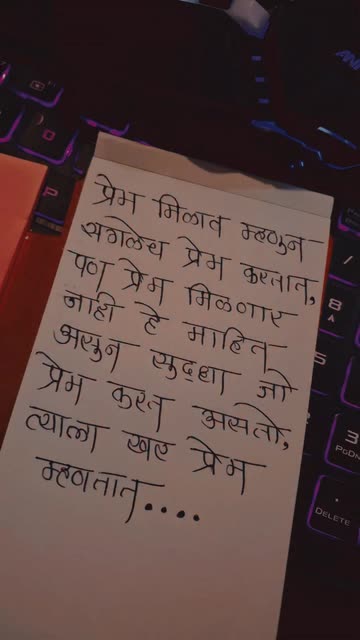 प्रेम मिळाव म्हणुन
सगळेच प्रेम करतात,
पण प्रेम मिळणार
नाही हे माहित
असुन सुद्धा जो
प्रेम करत असतो,
त्याला खरं प्रेम
म्हणतात....
P
8
A
5
3
PGDN
DELETE
/